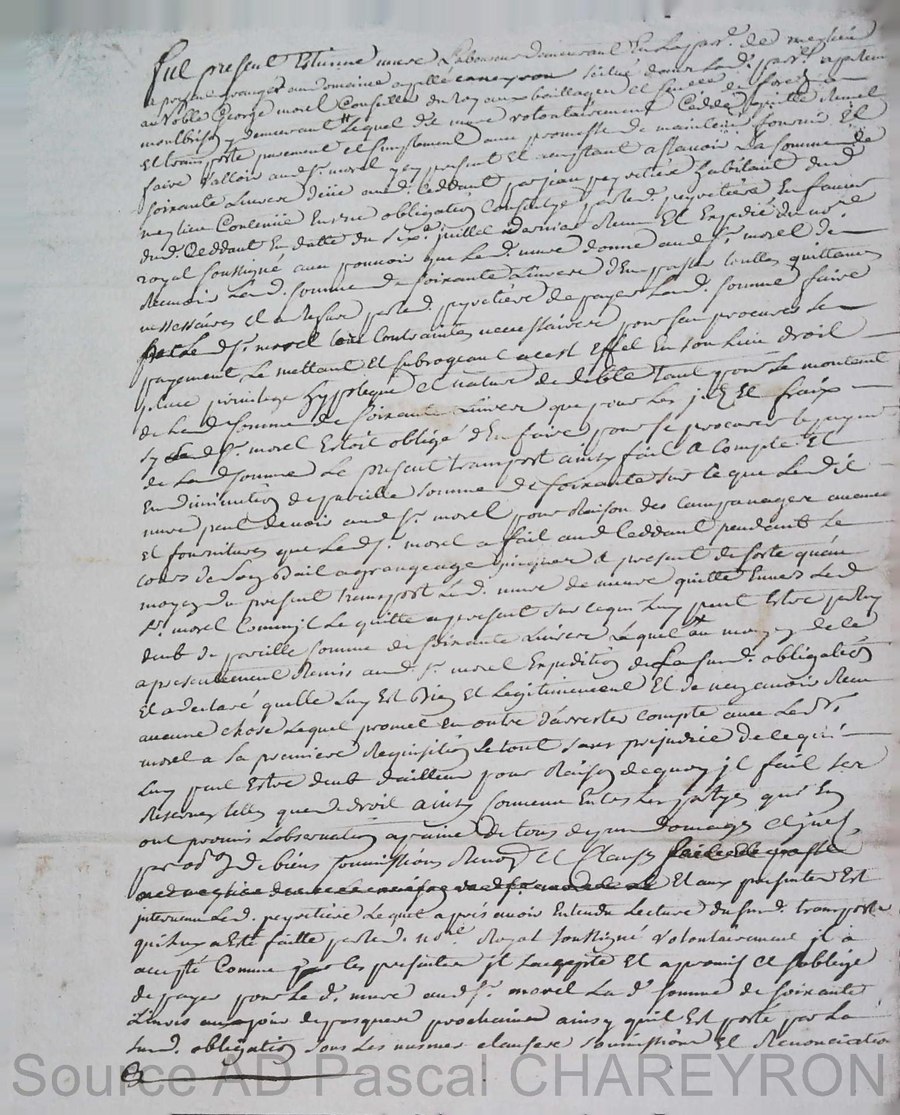 fut present Estienne mure Laboureur demeurant En La par.e de merlieu
a present granger au domaine appellé chareyron scitué dans La d. parr.e apartenant
au Noble George morel Conseiller du Roy aux bailliages et senée de forest
montbrison y demeurant Lequel dit mure volontairement Cedde quitte Remet
Et transporte purement Et simplement avec promesse de maintenir fournir Et
faire valloir aud. Sr. morel yey present Et acceptant assavoir La somme de
soixante Livres deüe aud. Ceddant par jean peyretiere habitant dud.
merlieu Contenüe En une obligation Consentye par led. peyretiere En faveur
dud. Ceddant En datte du six.e juillet dernier Receu Et Expedié du no.re
royal soussigné avec pouvoir que Led. mure donne aud. Sr. morel de
Recevoir Lad. somme de soixante Livres d'En passer touttes quittances
nessessaires Et a Refus par led. peyretiere de payer Lad. somme faire
par Led. Sr. morel touttes contraintes necessaires pour s'en procurer Le
payement Le mettant Et subrogeant a cest Effet En son Lieu droit
place privilege hyppoteque et nature de debte tant pour Le montant
de Lad. somme de soixante Livres que pour Les Et fraix
sy Led. Sr. morel Estoit obligé d'En faire pour se procurer le payem.t
de Lad. somme Le present transport ainsy fait a Compte Et
En diminution de pareille somme de soixante sur ce que Led.
mure peut devoir aud. Sr. morel pour Raison des avances
Et fournitures que Led. Sr. morel a fait aud. Ceddant pendant Le
cours de Son Bail a grangeage jusques a present de sorte qu'au
moyen du present transport Led. mure demeure quitte Envers Led.
Sr. morel Comme jl Le quitte a present sur ce qui Luy peut Estre par Luy
deub de pareille somme de soixante Livres Lequel au moyen de ce
a presentement Remis aud. Sr. morel Expedition de La sus d. obligation
Et a declaré quelle Luy Est Bien Et Legitimement Et de n'en avoir Receu
aucune chose Lequel promet En outre d'arrester compte avec Led. Sr.
morel a sa premiere Requisition Le tout sans prejudice de ce qui
Luy peut Estre deub d'ailleurs pour Raison de quoy jl fait ses
Reserves telles que de droit ainsy Convenu Entre Les partyes qui En
ont promis L'observation a peine de tous depens domages Et
par de biens soumissions Renon Et Clauses
Et aux presentes Est
intervenu Led. peyretiere Lequel apres avoir Entendu Lecture du susd. transport
qui Luy a Esté faitte par led. no.re Royal soussigné volontairement jl a
accepté Comme par les presentes jl L'accepte Et a promis Et s'oblige
de payer pour Le d. mure aud. Sr. morel La d. somme de soixante
Livres au jour de pasques prochaines ainsy qu'il Est porté par La
susd. obligation sous Les mesmes clauses soumissions Et Renonciation
&
Source AD Pascal CHAREYRON